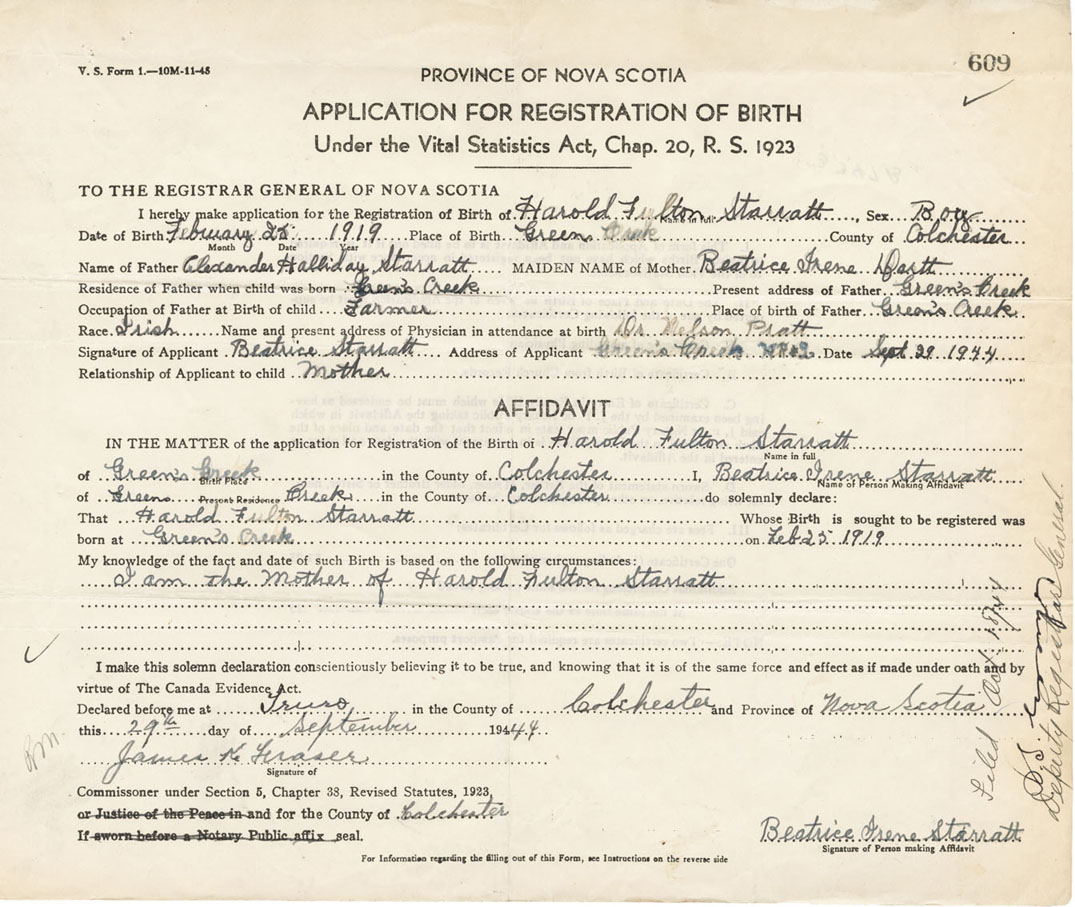 V. S. Form 1.—10M-11-45
609
PROVINCE OF NOVA SCOTIA
APPLICATION FOR REGISTRATION OF BIRTH
Under the Vital Statistics Act, Chap. 20, R. S. 1923
TO THE REGISTRAR GENERAL OF NOVA SCOTIA
I hereby make application for the Registration of Birth of Harold Fulton Starratt, Sex Boy
Name in full
Date of Birth February 25 1919 Place of Birth Greens Creek County of Colchester
Month Date Year
Name of Father Alexander Halliday Starratt MAIDEN NAME of Mother Beatrice Irene Dartt
Residence of Father when child was born Green's Creek Present address of Father Green's Creek
Occupation of Father at Birth of child Farmer Place of birth of Father Green's Creek
Race Irish Name and present address of Physician in attendance at birth Dr. Nelson Pratt
Signature of Applicant Beatrice Starratt Address of Applicant Green's Creek Date Sept 29 1944
Relationship of Applicant to child Mother
AFFIDAVIT
IN THE MATTER of the application for Registration of the Birth of Harold Fulton Starratt
Name in full
of Green's Creek in the County of Colchester I, Beatrice Irene Starratt
Birth Place Name of Person Making Affidavit
of Greens Creek in the County of Colchester do solemnly declare:
Present Residence
That Harold Fulton Starratt Whose Birth is sought to be registered was
born at Green's Creek on Feb 25 1919
My knowledge of the fact and date of such Birth is based on the following circumstances:
I am the Mother of Harold Fulton Starratt
I make this solemn declaration conscientiously believing it to be true, and knowing that it is of the same force and effect as if made under oath and by
virtue of The Canada Evidence Act.
Declared before me at Truro in the County of Colchester and Province of Nova Scotia
this 29th day of September 1944
James K Fraser
Signature of
Commissoner under Section 5, Chapter 38, Revised Statutes, 1923,
or Justice of the Peace in and for the County of Colchester
If sworn before a Notary Public affix seal.
Beatrice Irene Starratt
Signature of Person making Affidavit
For Information regarding the filling out of this Form, see Instructions on the reverse side
Filed Oct 18/44
Deputy Registrar General.